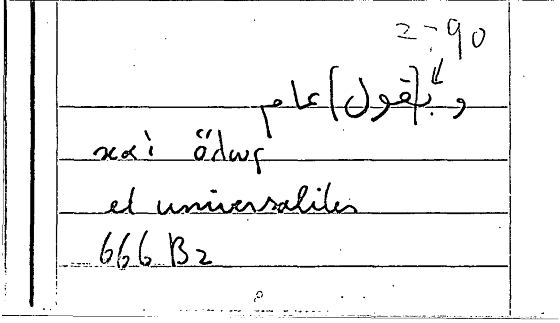 2-90
و ب[قول] عام
καὶ ὅλως
et universaliter
666 B2